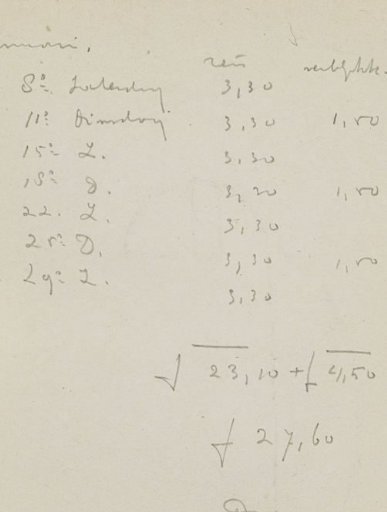 reis verblijfk.
8e Zaterdag 3,30
11e Dinsdag 3,30 1,50
15e Z. 3,30
18e D. 3,30 1,50
22. Z. 3,30
25e D. 3,30 1,50
29e Z. 3,30
f 23,10 + f 4,50
f 27,60